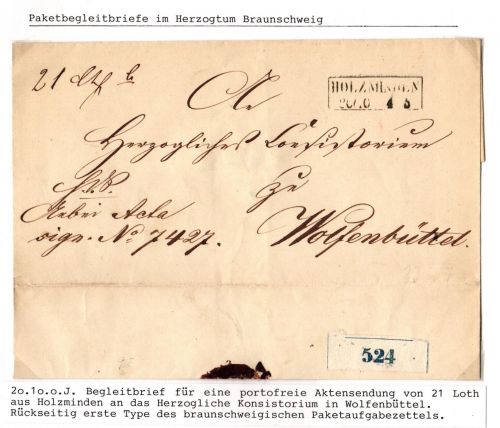 Paketbegleitbriefe im Herzogtum Braunschweig
21 Lth
An
HOLZMINDEN
20/10 4-5
Herzogliches Consistorium
zu
Wolfenbüttel.
Nebei Acta
sign. No 7427.
524
2o.1o.o.J. Begleitbrief für eine portofreie Aktensendung von 21 Loth
aus Holzminden an das Herzogliche Konsistorium in Wolfenbüttel.
Rückseitig erste Type des braunschweigischen Paketaufgabezettels.